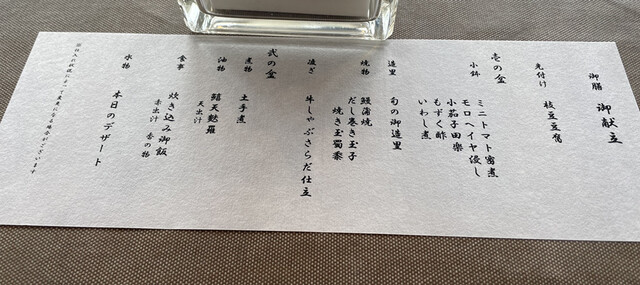 御膳 御献立
先付け
枝豆豆腐
壱の盆
小鉢
ミニトマト蜜煮
モロヘイヤ浸し
小茄子田楽
もずく酢
いわし煮
造里
旬の御造里
焼物
鰻蒲焼
だし巻き玉子
焼き玉蜀黍
凌ぎ
牛しゃぶさらだ仕立
弐の盆
煮物
土手煮
油物
鱚天麩羅
天出汁
食事
炊き込み御飯
赤出汁 香の物
水物
本日のデザート
※仕入れ状況によって変更になる場合がございます